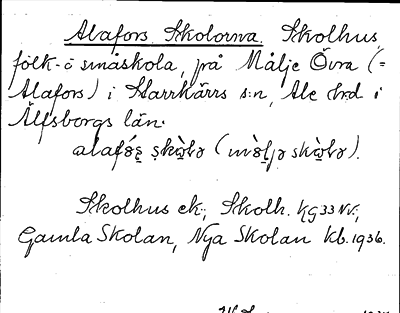 Alafors Skolorna. Skolhus,
folk- o småskola, på Målje Övra (=
Alafors) i Starrkärrs s:n, Ale hrd i
Älfsborgs län.
Skolhus ek., Skolh. KG 33 NV.,
Gamla Skolan, Nya Skolan Kb. 1936.